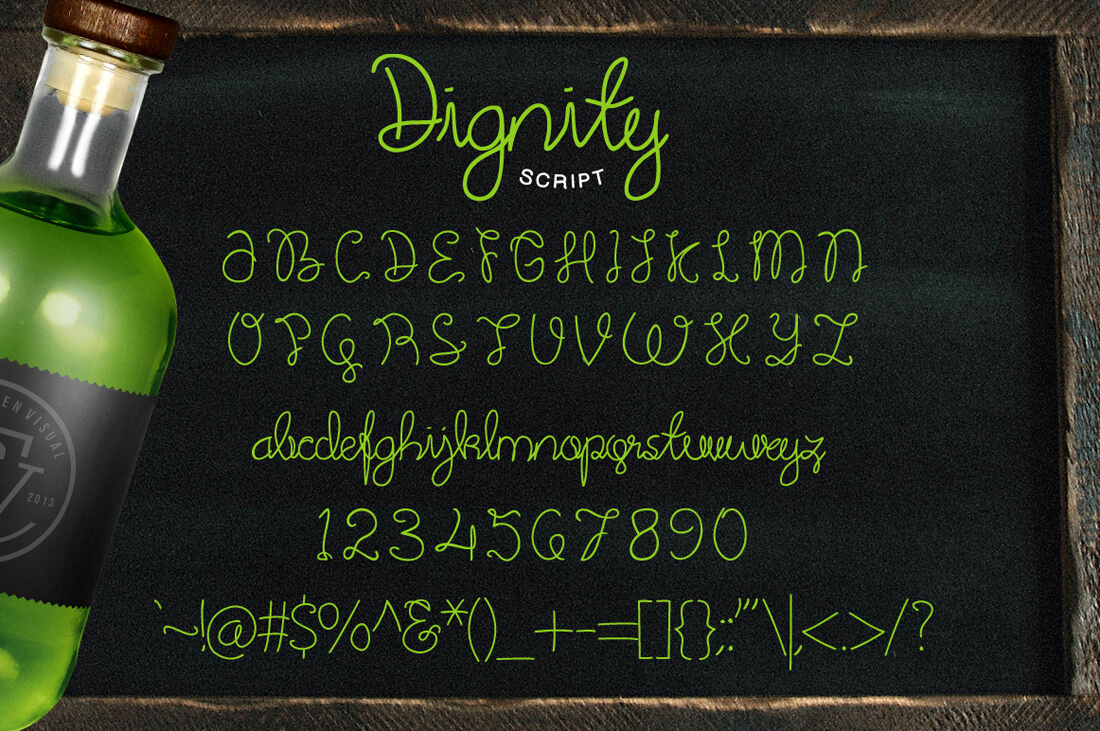 Dignity
SCRIPT
ABCDEFGHIJKLMN
OPQRSTUVWXYZ
abcdefghijklmnopqrstuvwxyz
1234567890
`~!@#$%^&*()_+-=[]{};:'"\|,<.>/?
EN VISUAL
2013